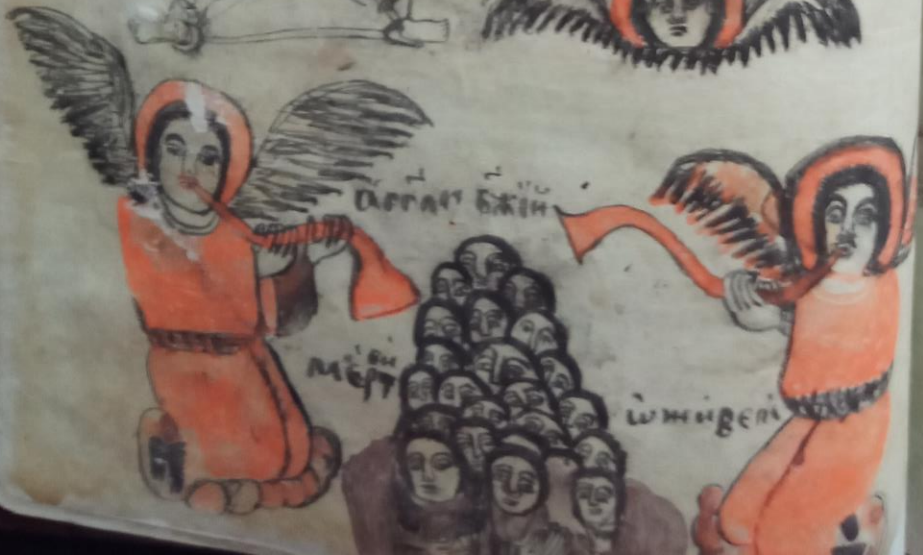 аггли бжїи
мєртви
ѡживєни